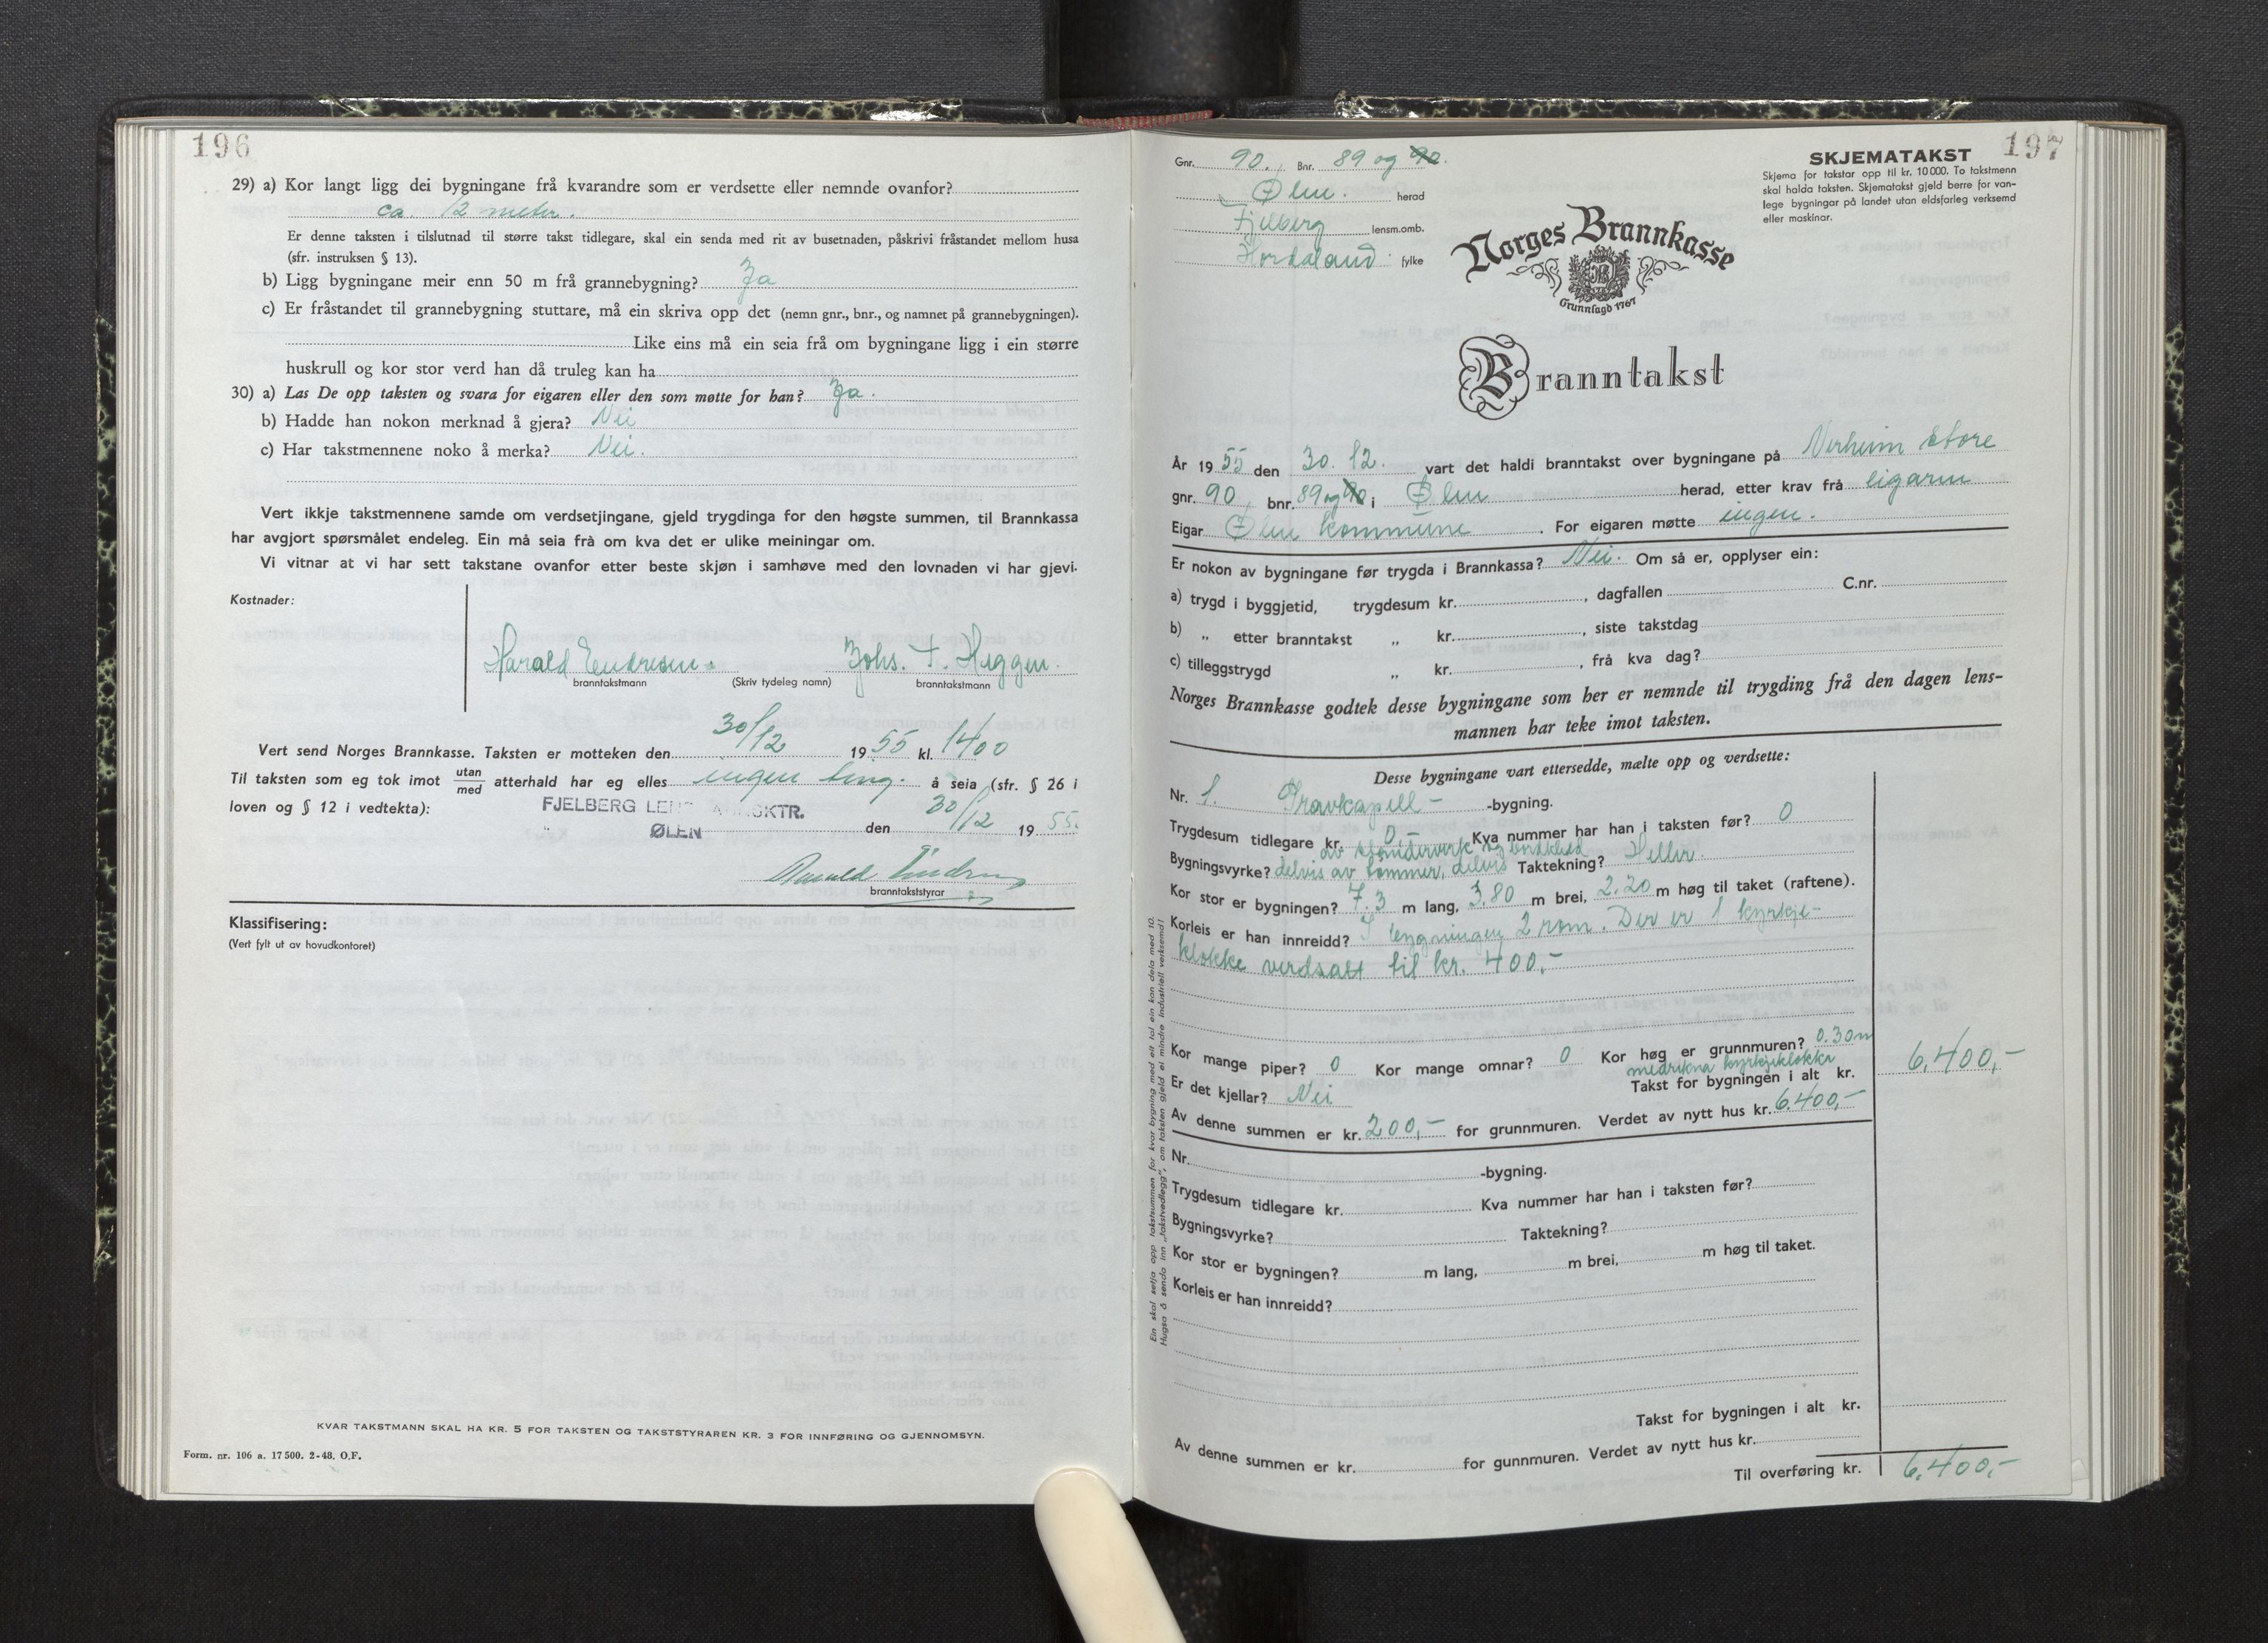 196
29) a) Kor langt ligg dei bygningane frå kvarandre som er verdsette eller nemnde ovanfor?
ca. 12 meter.
Er denne taksten i tilslutnad til større takst tidlegare, skal ein senda med rit av busetnaden, påskrivi fråstandet mellom husa
(sfr. instruksen § 13).
b) Ligg bygningane meir enn 50 m frå grannebygning? Ja
c) Er fråstandet til grannebygning stuttare, må ein skriva opp det (nemn gnr., bnr., og namnet på grannebygningen).
Like eins må ein seia frå om bygningane ligg i ein større
huskrull og kor stor verd han då truleg kan ha
30) a) Las De opp taksten og svara for eigaren eller den som møtte for han? Ja.
b) Hadde han nokon merknad å gjera? Nei
c) Har takstmennene noko å merka? Nei.
Vert ikkje takstmennene samde om verdsetjingane, gjeld trygdinga for den høgste summen, til Brannkassa
har avgjort spørsmålet endeleg. Ein må seia frå om kva det er ulike meiningar om.
Vi vitnar at vi har sett takstane ovanfor etter beste skjøn i samhøve med den lovnaden vi har gjevi.
Kostnader:
Harald Endresen. Johs. F. Heggen.
branntakstmann (Skriv tydeleg namn) branntakstmann
Vert send Norges Brannkasse. Taksten er motteken den 30/12 1955 kl. 1400
Til taksten som eg tok imot utan/med atterhald har eg elles ingen ting. å seia (sfr. § 26 i
loven og § 12 i vedtekta):
FJELBERG LENSMANNSKTR.
ØLEN den 30/12 1955.
branntakststyrar
Klassifisering:
(Vert fylt ut av hovudkontoret)
KVAR TAKSTMANN SKAL HA KR. 5 FOR TAKSTEN OG TAKSTSTYRAREN KR. 3 FOR INNFØRING OG GJENNOMSYN.
Form. nr. 106 a. 17 500. 2-48. O.F.
197
Gnr. 90., Bnr. 89 og 90.
Ølen. herad
Fjelberg lensm.omb.
Hordaland. fylke
SKJEMATAKST
Skjema for takstar opp til kr. 10 000. To takstmenn
skal halda taksten. Skjematakst gjeld berre for van-
lege bygningar på landet utan eldsfarleg verksemd
eller maskinar.
Norges Brannkasse
Grunnlagd 1767
Branntakst
År 1955 den 30. 12. vart det haldi branntakst over bygningane på Nerheim Store
gnr. 90, bnr. 89 og 90 i Ølen herad, etter krav frå eigaren
Eigar Ølen kommune. For eigaren møtte ingen.
Er nokon av bygningane før trygda i Brannkassa? Nei. Om så er, opplyser ein:
a) trygd i byggjetid, trygdesum kr. , dagfallen C.nr.
b) „ etter branntakst „ kr. , siste takstdag
c) tilleggstrygd „ kr. , frå kva dag?
Norges Brannkasse godtek desse bygningane som her er nemnde til trygding frå den dagen lens-
mannen har teke imot taksten.
Desse bygningane vart ettersedde, mælte opp og verdsette:
Nr. 1. Gravkapell- -bygning.
Trygdesum tidlegare kr. 0,- Kva nummer har han i taksten før? 0
av bindverk
Bygningsvyrke? delvis av tømmer, delvis Taktekning? Heller.
Kor stor er bygningen? 7.3 m lang, 3.80 m brei, 2.20 m høg til taket (raftene).
Korleis er han innreidd? I bygningen 2 rom. Der er 1 kyrkje-
klokke verdsatt til kr. 400,-
Kor mange piper? 0 Kor mange omnar? 0 Kor høg er grunnmuren? 0.30m
medrekna kyrkjeklokka
Er det kjellar? Nei Takst for bygningen i alt kr. 6.400,-
Av denne summen er kr. 200,- for grunnmuren. Verdet av nytt hus kr. 6.400,-
Nr. -bygning.
Trygdesum tidlegare kr. Kva nummer har han i taksten før?
Bygningsvyrke? Taktekning?
Kor stor er bygningen? m lang, m brei, m høg til taket.
Korleis er han innreidd?
Takst for bygningen i alt kr.
Av denne summen er kr. for gunnmuren. Verdet av nytt hus kr.
Til overføring kr. 6.400,-
Ein skal setja opp takstsummen for kvar bygning med eit tal ein kan dela med 10.
Hugsa å senda inn „takstvedlegg”, om taksten gjeld ei mindre industriell verksemd!